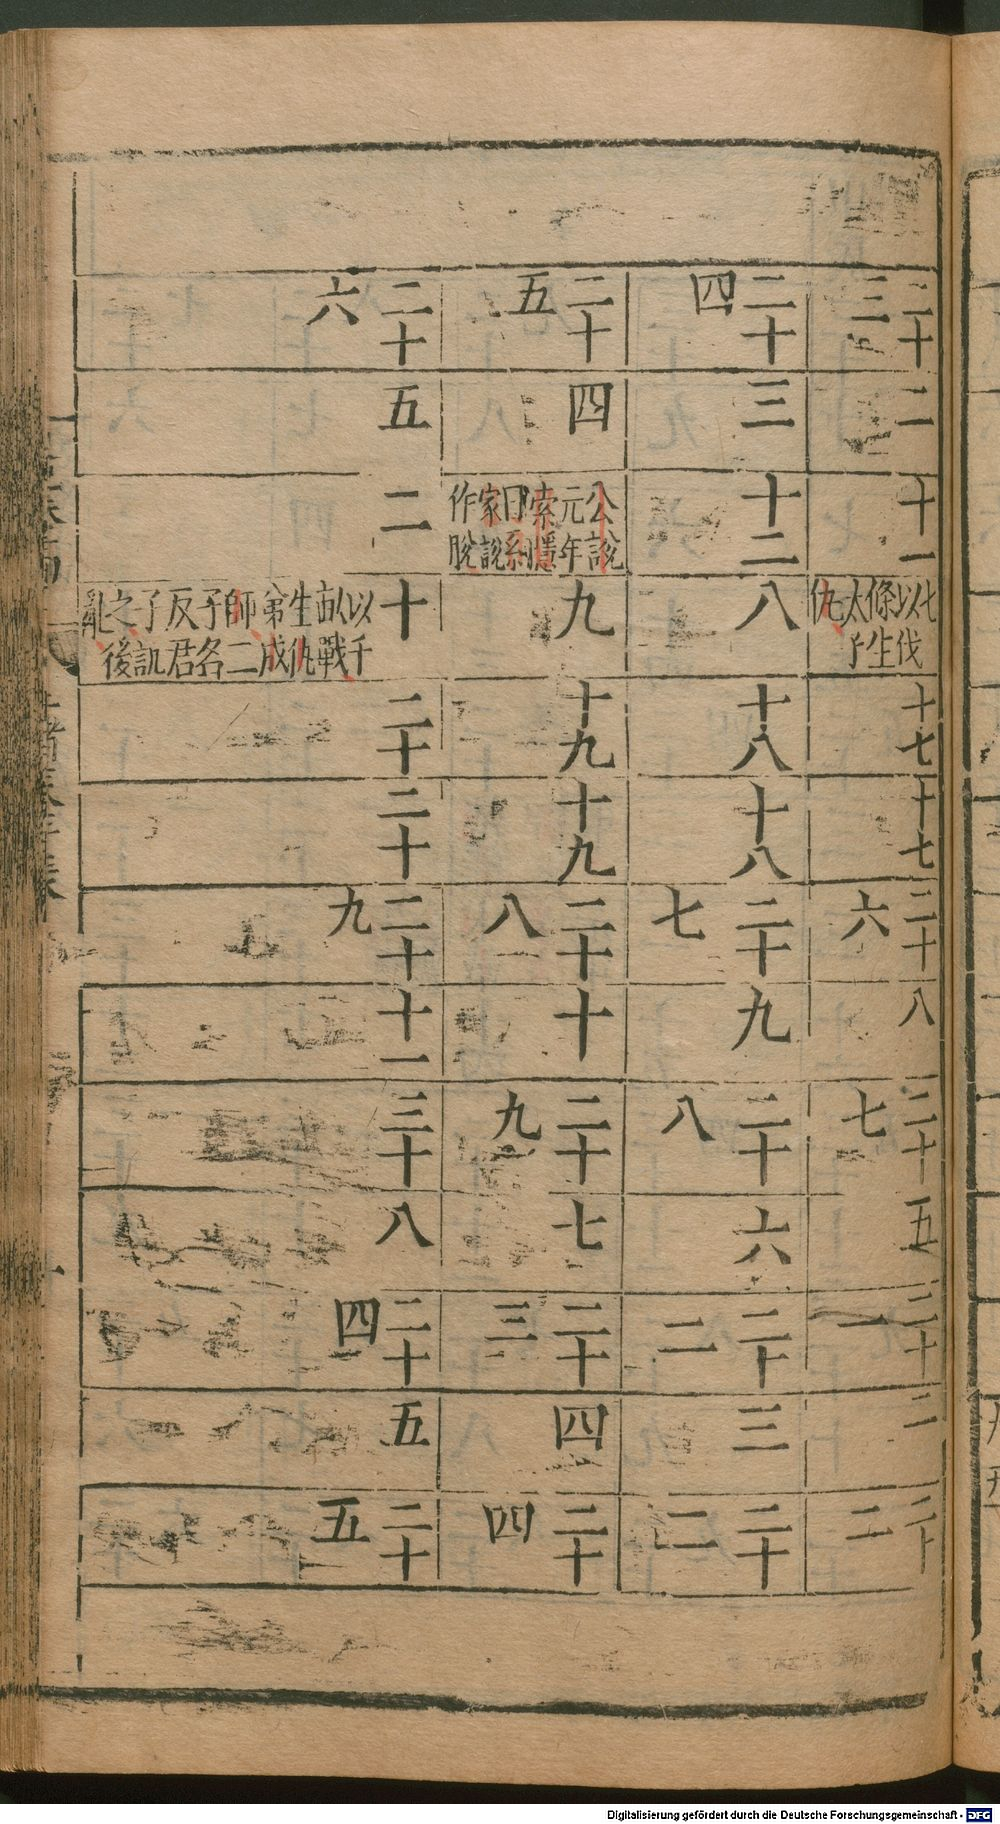 二十三
二
十一
七
以伐條生太子仇
十七
十七
二十六
八
二十七
五
二十一
二
二十二
二十四
三
十二
八
十八
十八
二十七
九
二十八
六
二十二
三
二十三
二十五
四
公說元年索隱曰系家說作脫
九
十九
十九
二十八
十
二十九
七
二十三
四
二十四
二十六
五
二
十
以千畝戰生仇弟成師二子名反君子譏之後亂
二十
二十
二十九
十一
三十
八
二十四
五
二十五
Digitalisierung gefördert durch die Deutsche Forschungsgemeinschaft - DFG